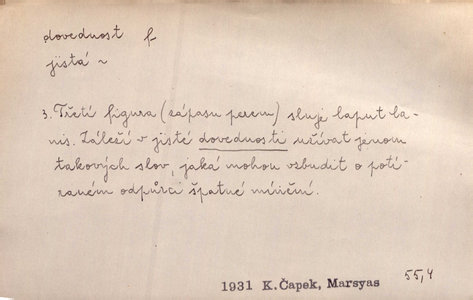 dovednost f
jistá ~
3. Třetí figura (zápasu perem) sluje caput ca-
nis. Záleží v jisté dovednosti užívat jenom
takových slov, jaká mohou vzbudit o potí-
raném odpůrci špatné mínění.
1931 K. Čapek, Marsyas
55,4